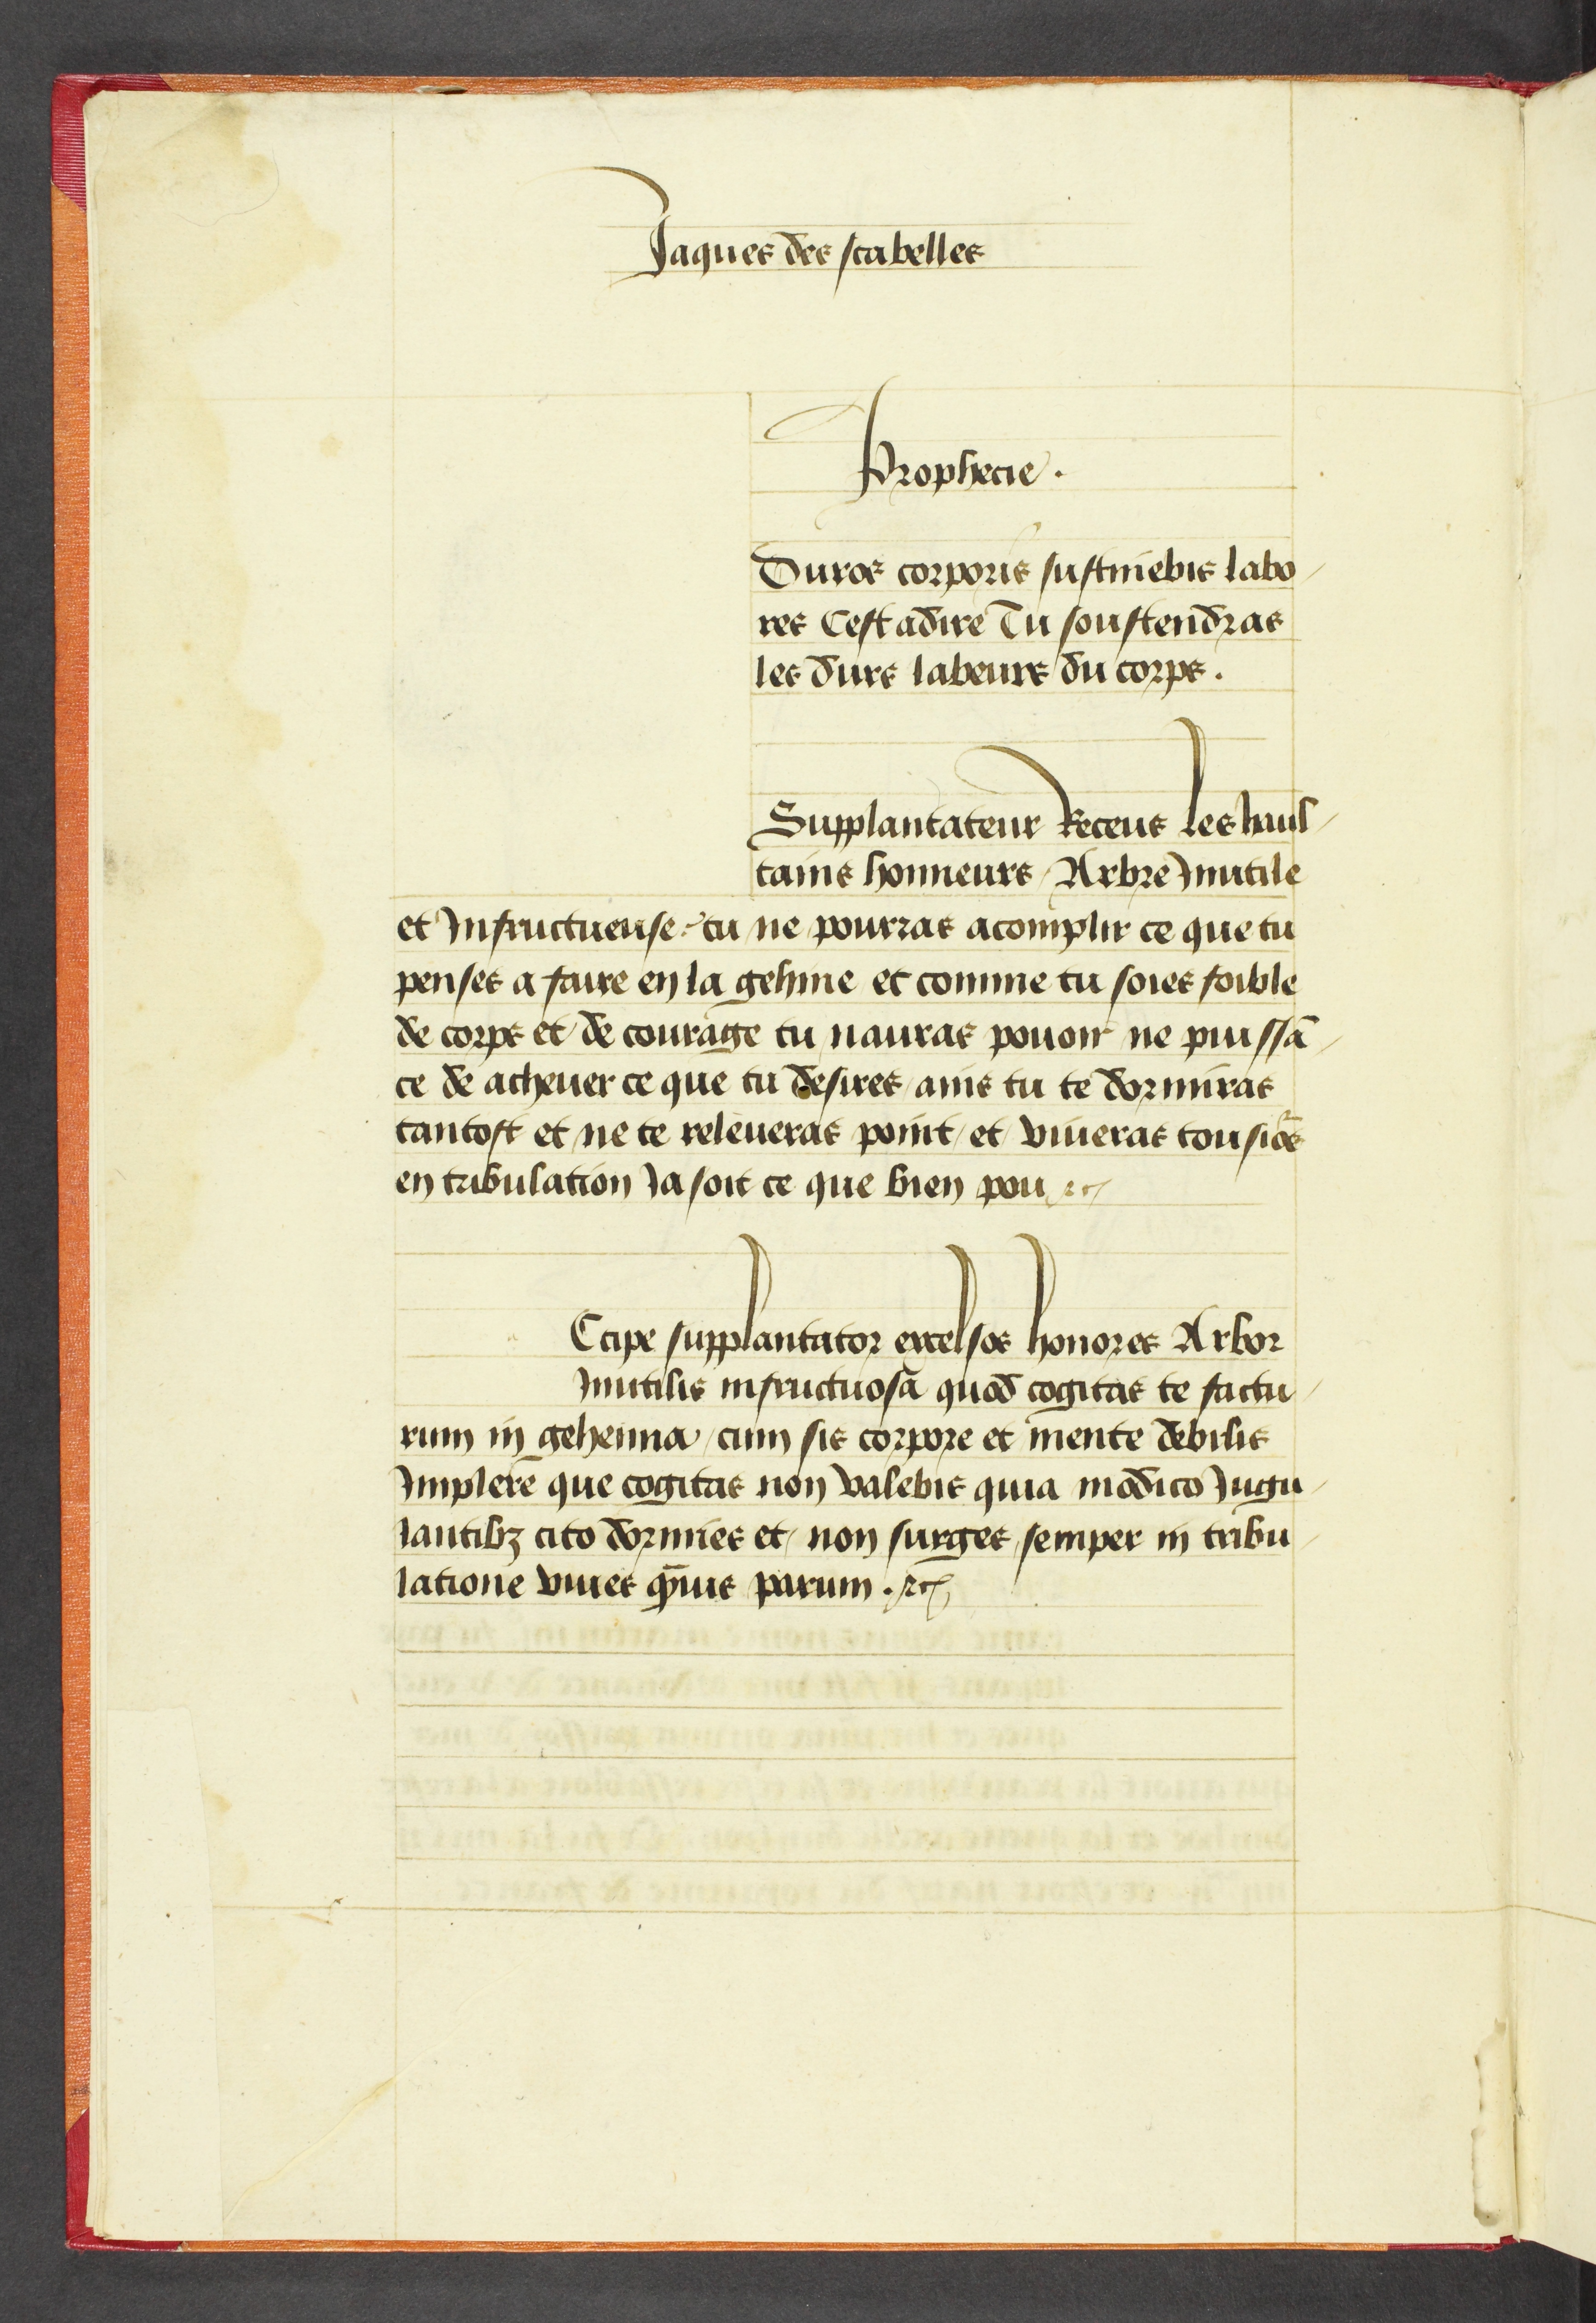 Jaques des scabelles
Prophecie.
Duros corporis sustinebis labo-
res Cest adire Tu soustendras
les durs labeurs du corps.
Supplantateur Receus les haul-
tains honneurs / Arbre Inutile
et Infructueuse / tu ne pourras acomplir ce que tu
penses a faire en la gehine et comme tu soies foible
de corps et de courage tu nauras pouoir ne puissā-
ce de acheuer ce que tu desires / ains tu te dormiras
tantost et ne te releueras point / et viueras
en tribulation Ja soit ce que bien pou
Ecipe supplantator excelsos honores Arbor
Inutilis infructuosā quod cogitas te factu-
rum in gehenna / cum sis corpore et mente debilis
Implere que cogitas non valebis quia modico Jugu-
lantibꝫ cito dormies et non surges semper in tribu-
latione viues parum.